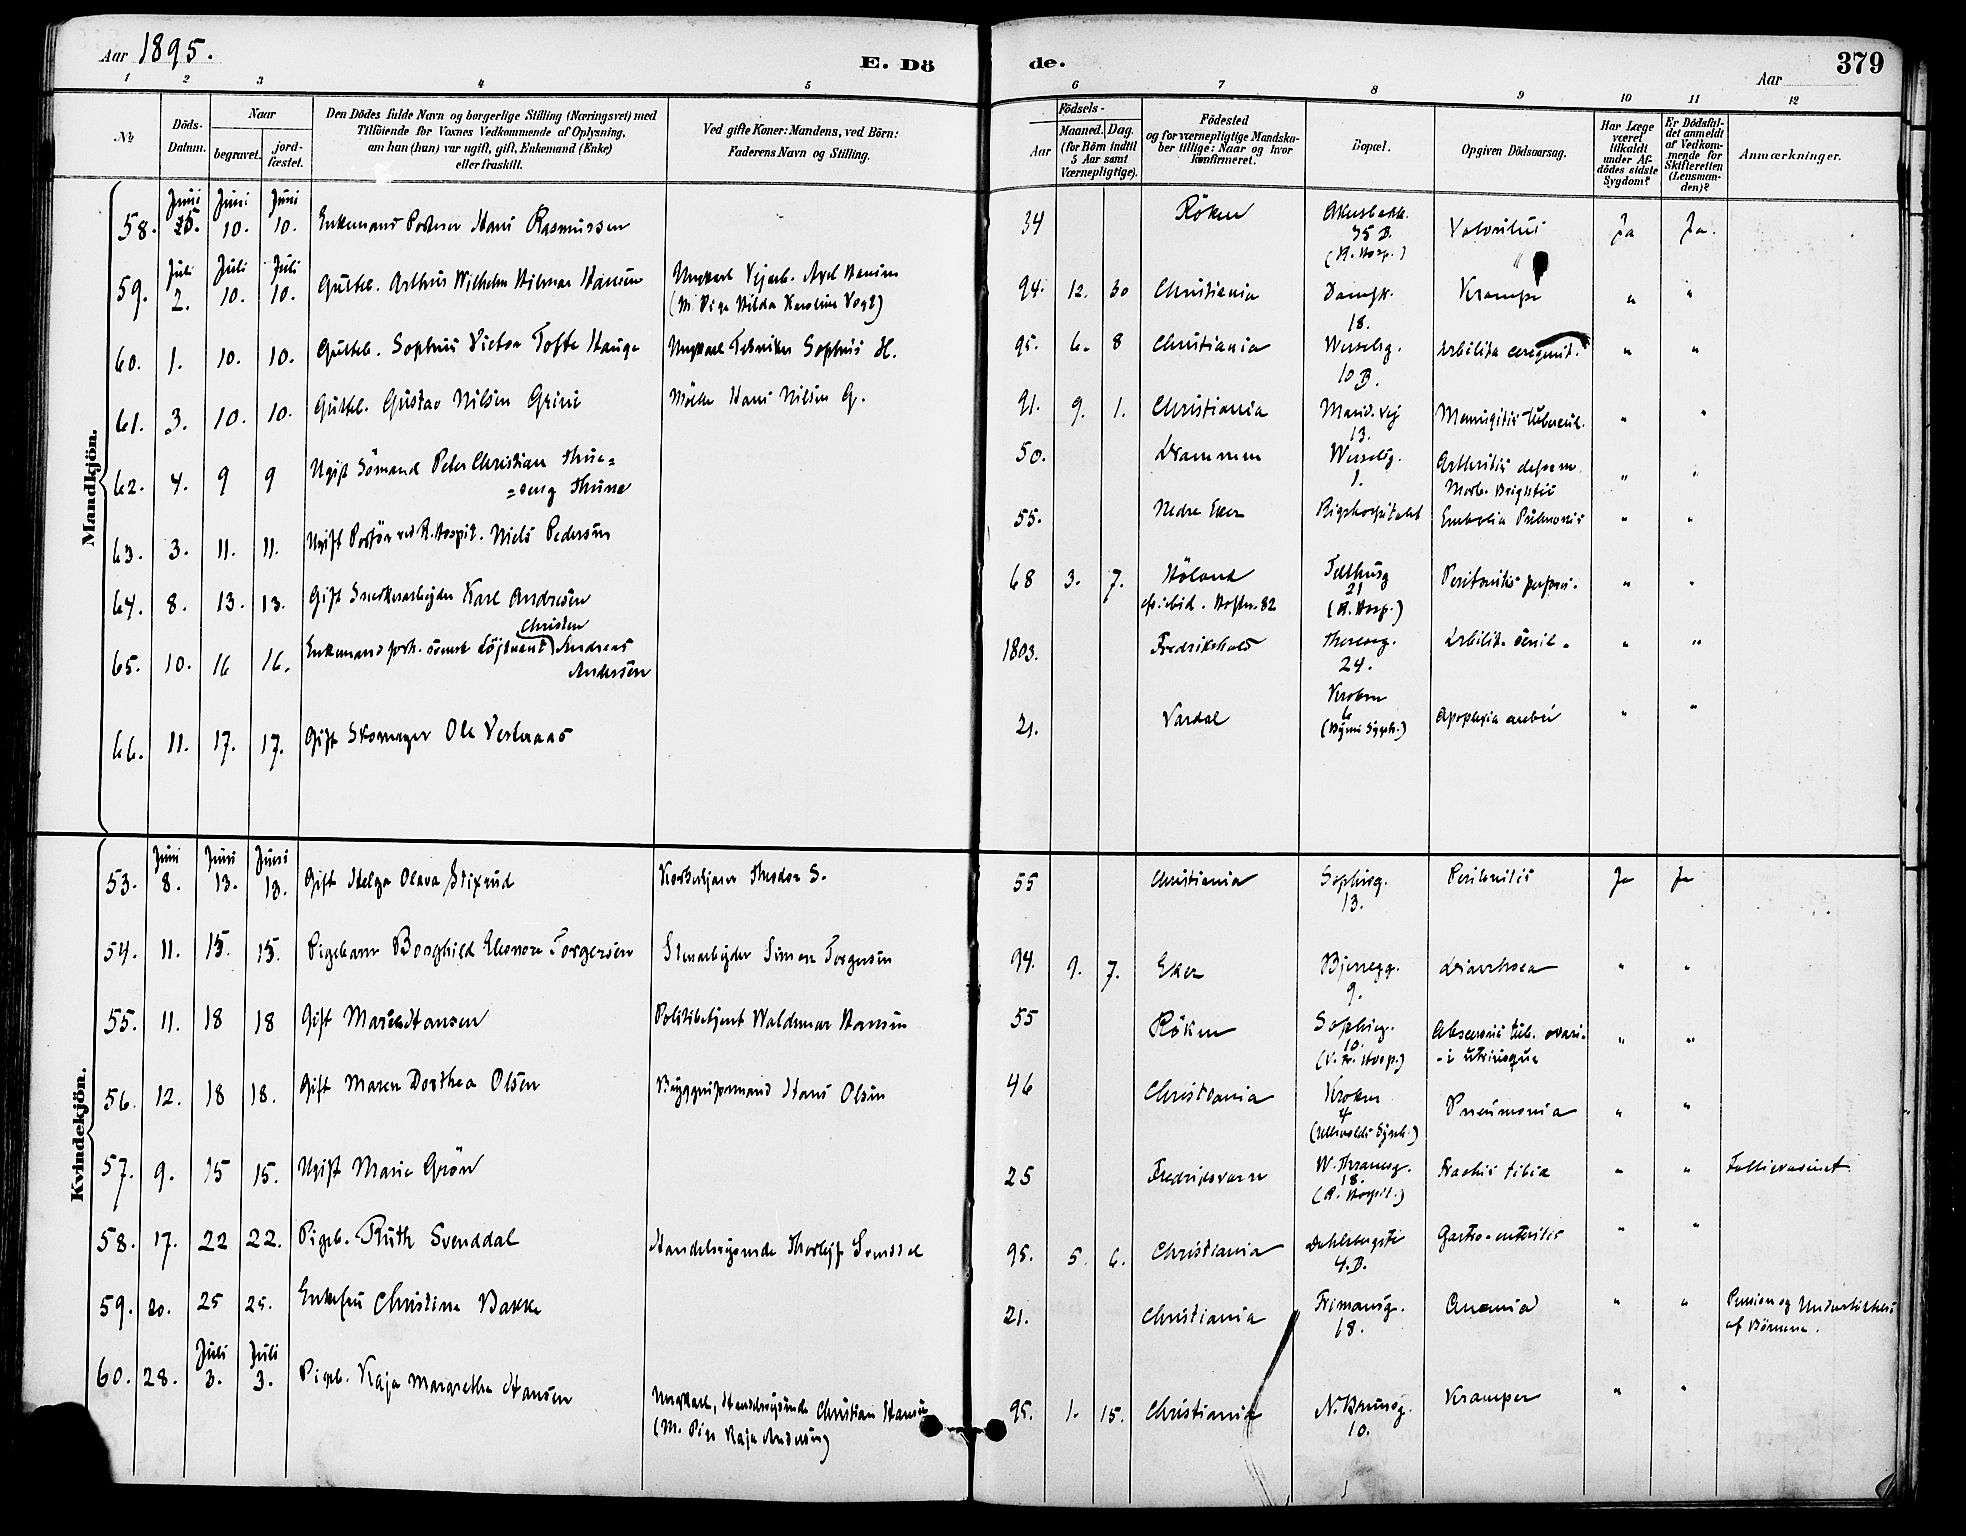 Aar 1895.
E. Dö
de.
Aar
379
1 2 3 4 5 6 7 8 9 10 11 12
№
Döds-Datum.
Naar
begravet.
jord-fæstet.
Den Dödes fulde Navn og borgerlige Stilling (Næringsvei) med
Tilföiende for Voxnes Vedkommende af Oplysning,
om han (hun) var ugift, gift, Enkemand (Enke)
eller fraskilt.
Ved gifte Koner: Mandens, ved Börn:
Faderens Navn og Stilling.
Födsels-
Aar
Maaned. Dag.
(for Börn indtil
5 Aar samt
Værnepligtige).
Födested
og for værnepligtige Mandska-
ber tillige: Naar og hvor
konfirmeret.
Bopæl.
Opgiven Dödsaarsag.
Har Læge
været
tilkaldt
under Af-
dödes sidste
Sygdom?
Er Dödsfal-
det anmeldt
af Vedkom-
mende for
Skifteretten
(Lensman-
den)?
Anmærkninger.
Mandkjön.
Juni Juni Juni
58. 25. 10. 10. Enkemand Hans Rasmussen 34 Röken 35 B. (R. Hosp.) Ja Ja.
Juli Juli Juli
59. 2. 10. 10. Gutteb. Arthur Wilhelm Hilmar Hansen Ungkarl Axel Hansen
(M. Pige Hilda Karoline Vogt) 94. 12. 30 Christiania 18. Krampe " "
60. 1. 10. 10. Gutteb. Sophus Victor Tofte Hauge Ungkarl Tekniker Sophus H. 95. 6. 8 Christiania Wesselsg. 10 B. " "
61. 3. 10. 10. Gutteb. Gustav Nilsen Grini Hans Nilsen G. 91. 9. 1. Christiania Marid. vej 13. Meningitis tubercul. " "
62. 4. 9 9 Ugift Sömand Peter Christian Thue=
=sen Thune 50. Drammen Wesselsg. 1. Arthritis deform.
Morb. Brightii " "
63. 3. 11. 11. Ugift Portör ved R. Hospit. Niels Pedersen 55. Nedre Eker Rigshospitalet Embolia Pulmonis " "
64. 8. 13. 13. Gift Snedkerarbejder Karl Andresen 68 3. 7. Höland 82 Telthusg 21 (R. Hosp.) Peritonitis perfor. " "
65. 10. 16 16. Enkemand Löjtnant Christen Andreas
Andersen 1803. Fredrikshald Theresesg. 24. Debilit. senil. " "
66. 11. 17. 17. Gift Skomager Ole Vesteraas 21. Vardal Kroken 6 Apoplexia cerebri " "
Kvindekjön.
Juni Juni Juni
53. 8. 13. 13. Gift Helga Olava Stixrud Theodor S. 55 Christiania Sophiesg. 13. Peritonitis Ja Ja
54. 11. 15. 15. Pigebarn Borghild Eleonora Torgersen Stenarbejder Simon Torgersen 94. 9. 7. Eker Bjerregg. 9. Diarrhoea " "
55. 11. 18 18 Gift Maren Hansen Politibetjent Waldemar Hansen 55 Röken Sophieg. 10. Abscessus tub. ovari-
-i utriusque " "
56. 12. 18 18. Gift Maren Dorthea Olsen Bryggeriformand Hans Olsen 46 Christiania Kroken 4 (Ullevolds Sygeh.) Pneumonia " "
57. 9. 15 15. Ugift Marie Grön 25 Fredriksværn W. Thranesg. 18. (R. Hospit.) tibiæ " " Fattigvæsenet
58. 17. 22 22. Pigeb. Ruth Svenddal Handelsrejsende Thorleif Svenddal 95. 5. 6. Christiania Dahlsbergstie 4. B. Gastro-enteritis " "
59. 20. 25 25. Enkefru Christine Bakke 21. Christiania Frimansg. 18. Anæmia " " Pension og Understöttelse
af Börnene.
Juli Juli
60. 28. 3. 3. Pigeb. Kaja Margrethe Hansen Ungkarl, Handelsrejsende Christian Hansen
(M. Pige Kaja Andersen) 95. 1. 15. Christiania N. Brunsg. 10. Kramper " "